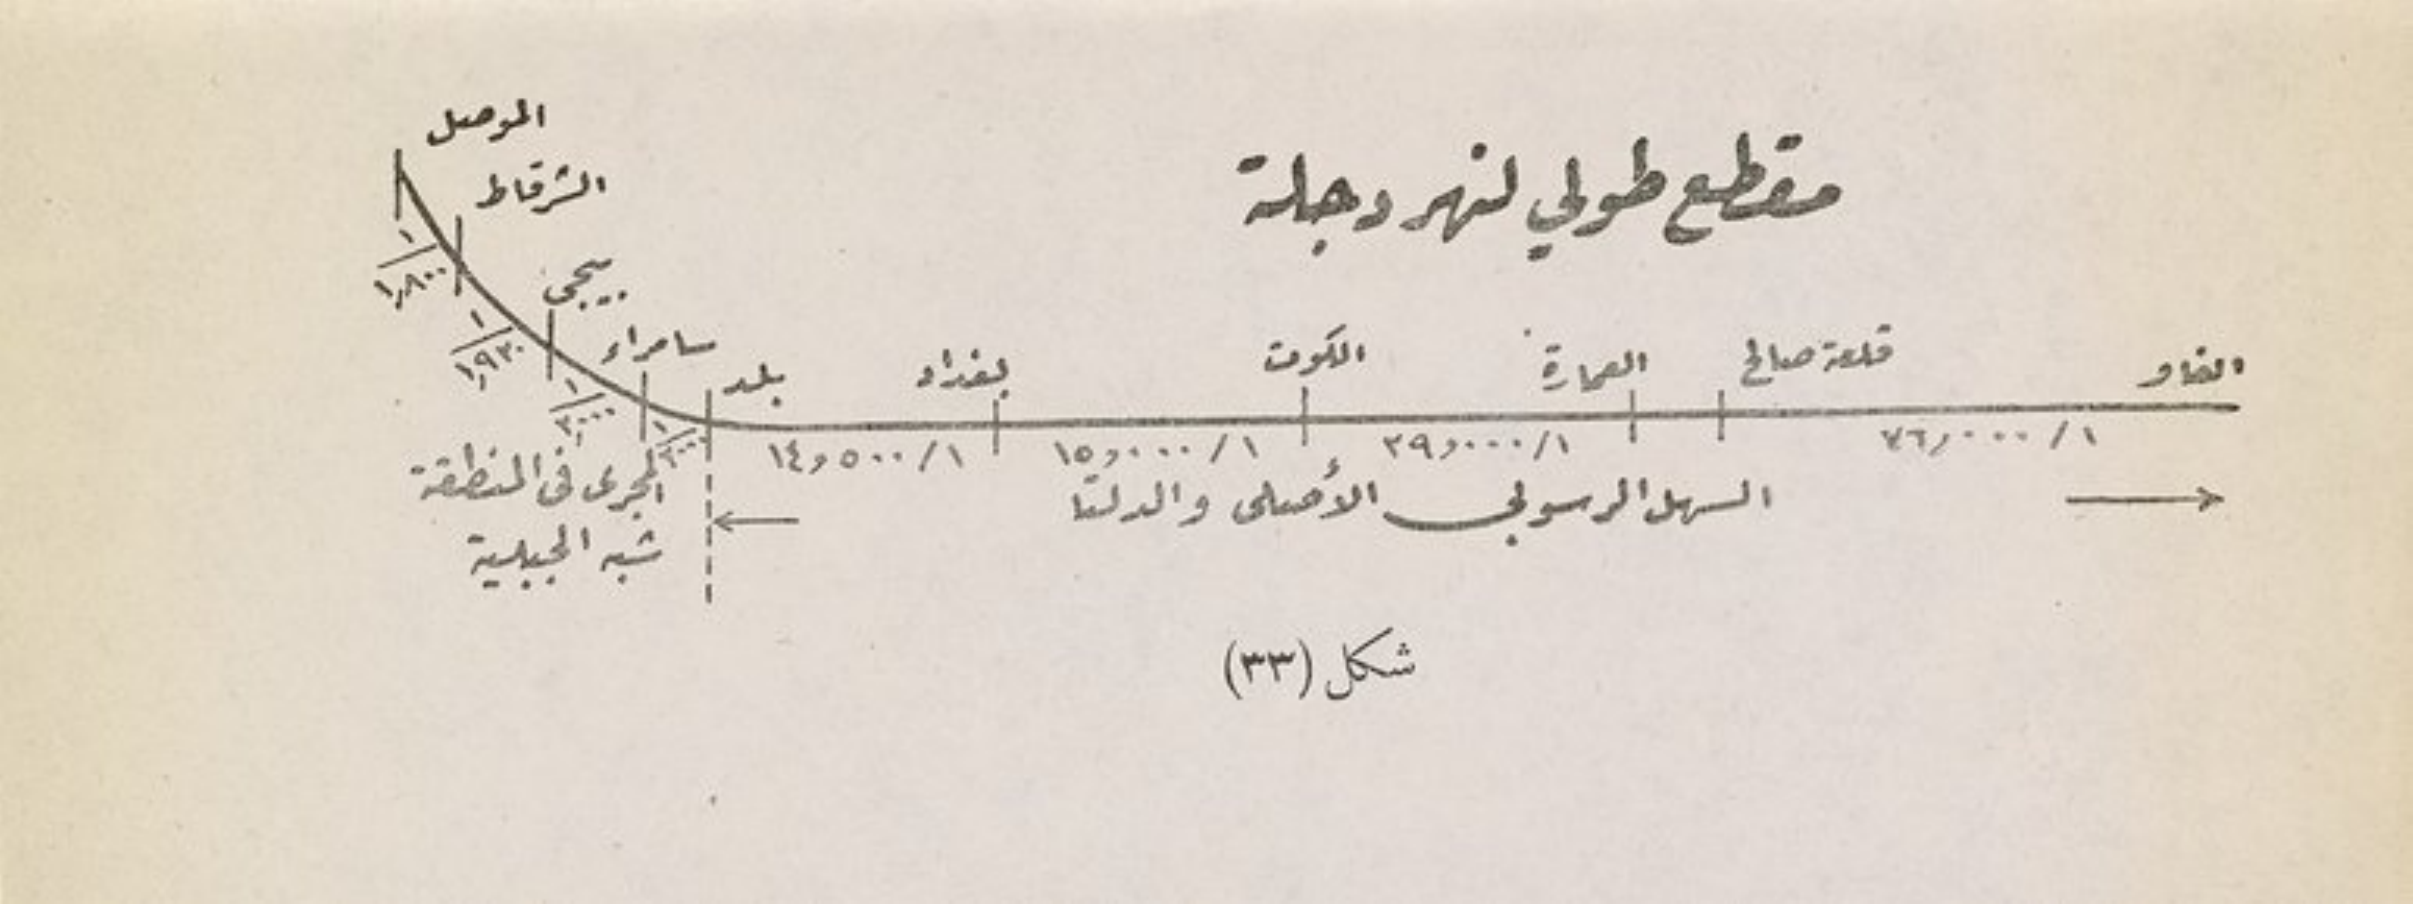 مقطع طولي لنهر دجلة
الموصل
الشرقاط
بيجي
سامراء
بلد
بغداد
الكوت
العمارة
قلعة صالح
الفاو
١/١,٨٠٠
١/١,٩٣٠
١/٢,٠٠٠
١٤,٥٠٠/١
١٥,٠٠٠/١
٢٩,٠٠٠/١
٧٦,٠٠٠/١
المجرى في المنطقة
شبه الجبلية
السهل الرسوبي الأصلى والدلتا
شكل (٣٣)